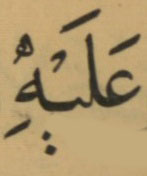 عَلَيْهُِ